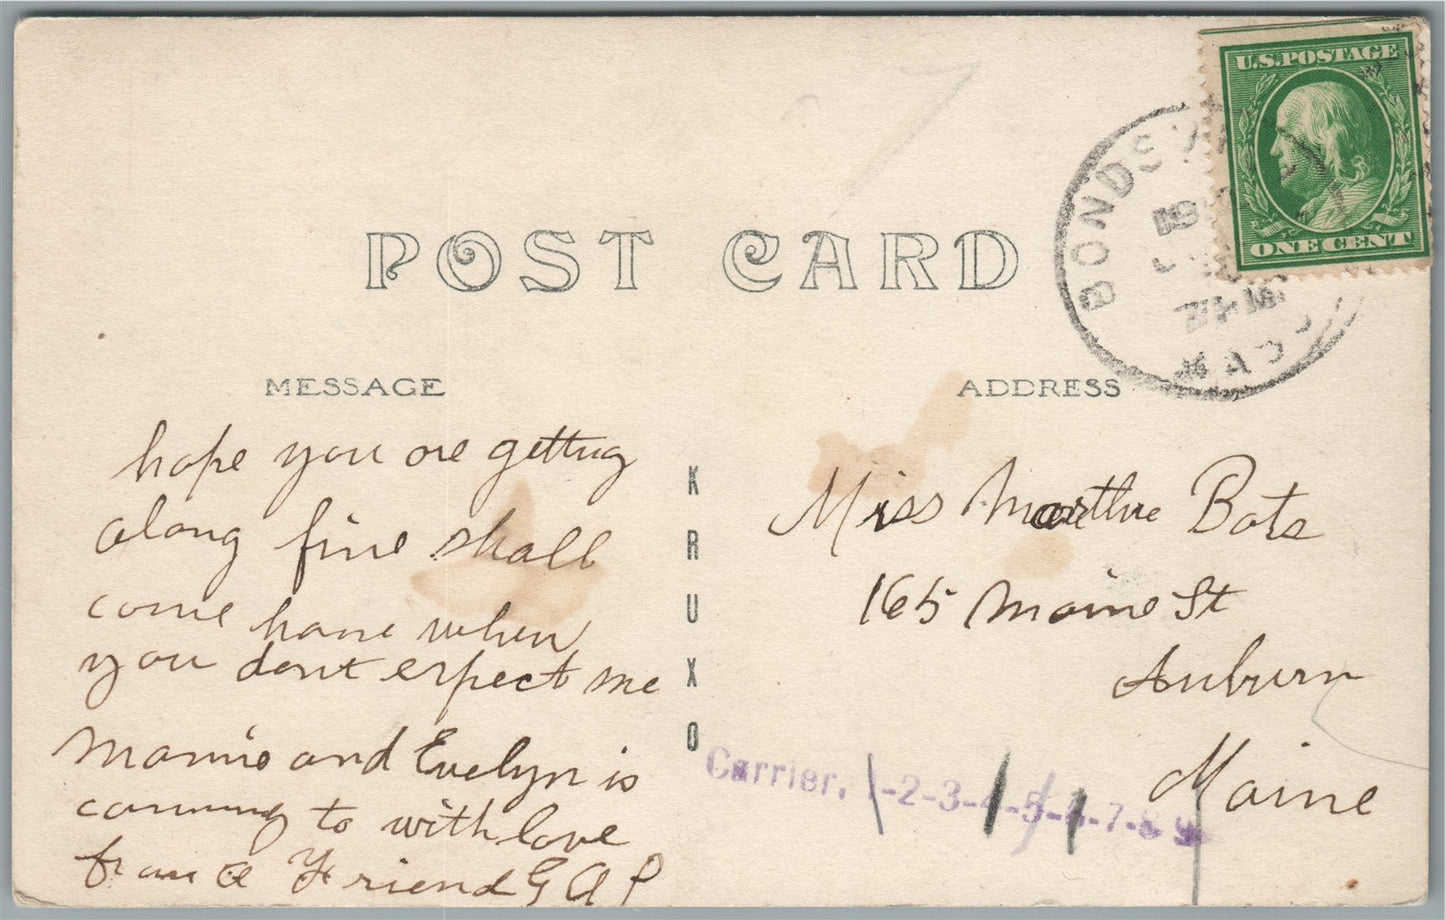 U.S.POSTAGE
ONE CENT
BONDSV
MASS
POST CARD
MESSAGE
hope you are getting
along fine shall
come home when
you dont expect me
and Evelyn is
comming to with love
from a Friend G A P
KRUXO
ADDRESS
Miss Marthe Bats
165 Maine St
Auburn
Maine
Carrier. 1-2-3-4-5-6-7-8-9